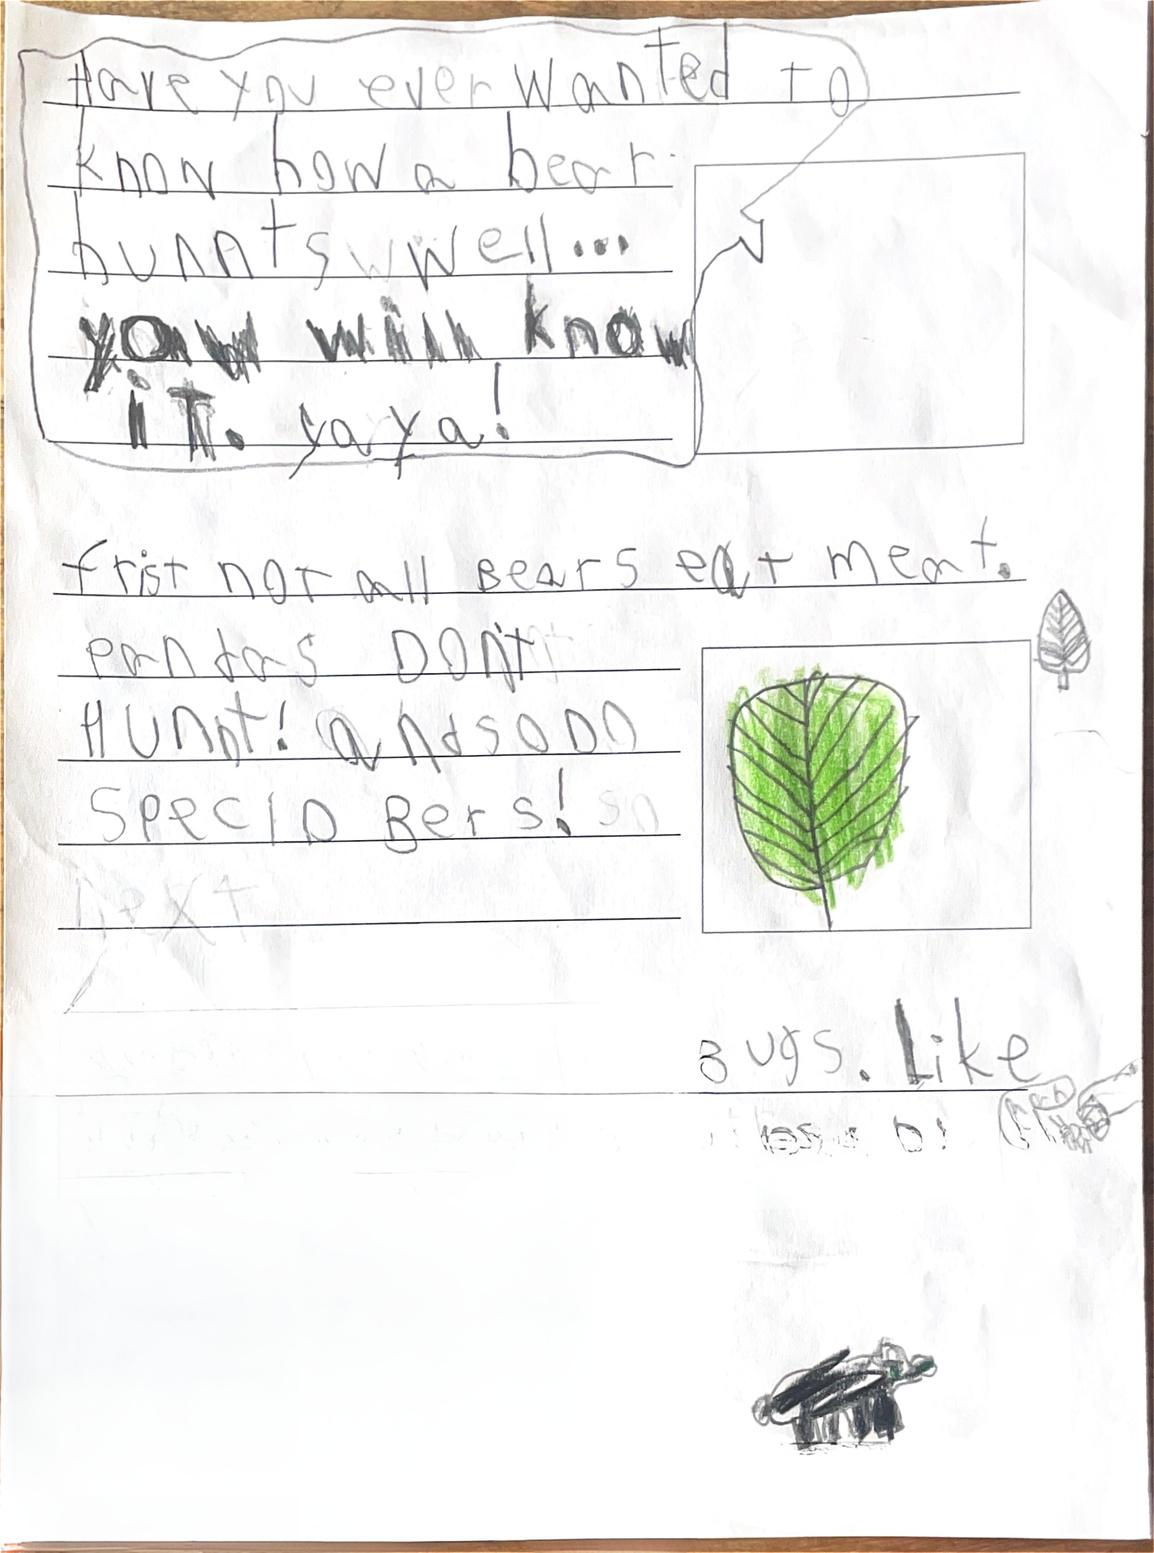 Have you ever wanted to
know how a bear
hunnts well...
yow will know
iT. yaya!
frist not all Bears eat meat.
pandas DON't
HUnnt! and soon
SpeciD Bers! so
next
Bugs. Like